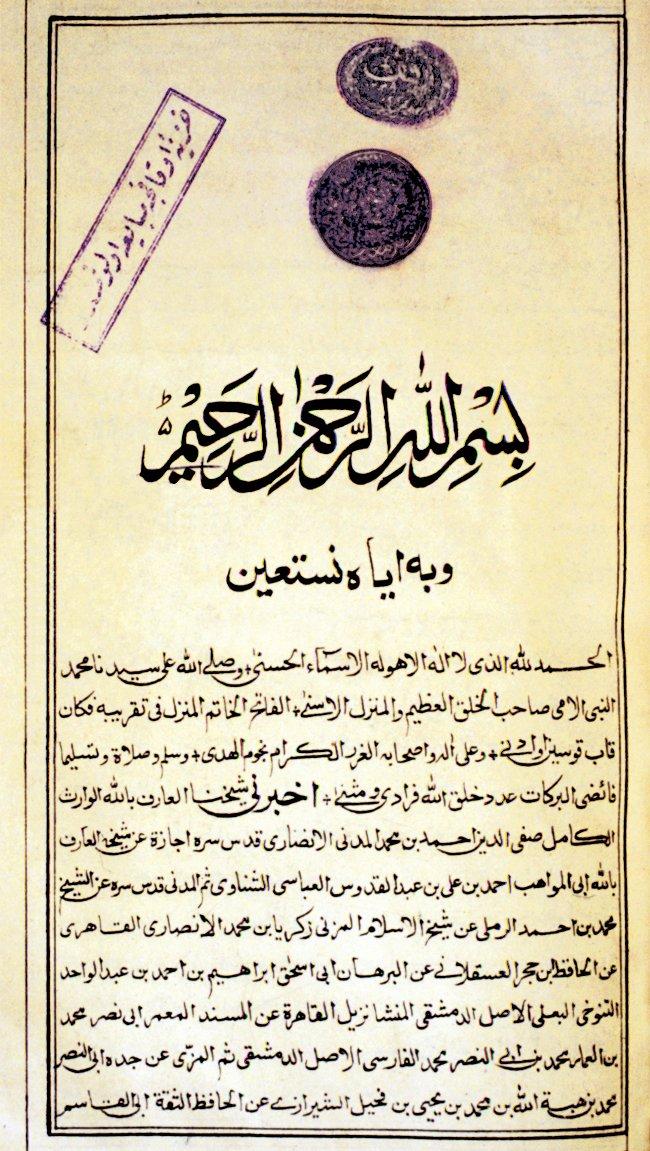 بِسْمِ اللهِ الرَّحْمٰنِ الرَّحِيْمِ
وبه اياه نستعين
الحمد لله الذى لا اله الا هو له الاسمآء الحسنى وصلى الله على سيدنا محمد
النبى الامى صاحب الخلق العظيم والمنزل الاسنى الفاتح الخاتم المنزل فى تقريبه فكان
قاب قوسين او ادنى وعلى اله واصحابه الغر الكرام نجوم الهدى وسلم وصلاة وتسليما
فائضى البركات عدد خلق الله فرادى ومثنى اخبرنى شيخنا العارف بالله الوارث
الكامل صفى الدين احمد بن محمد المدنى الانصارى قدس سره اجازة عن شيخه العارف
بالله ابى المواهب احمد بن على بن عبد القدوس العباسى الشناوى ثم المدنى قدس سره عن الشيخ
محمد بن احمد الرملى عن شيخ الاسلام المزنى زكريا بن محمد الانصارى القاهرى
عن الحافظ ابن حجر العسقلانى عن البرهان ابى اسحق ابراهيم بن احمد بن عبد الواحد
التنوخى البعلى الاصل الدمشقى المنشا نزيل القاهرة عن المسند المعمر ابى نصر محمد
بن العماد محمد بن ابى النصر محمد الفارسى الاصل الدمشقى ثم المزى عن جده ابى النصر
محمد بن هبة الله بن محمد بن يحيى بن فحيل الشيرازى عن الحافظ الثقة ابى القاسم